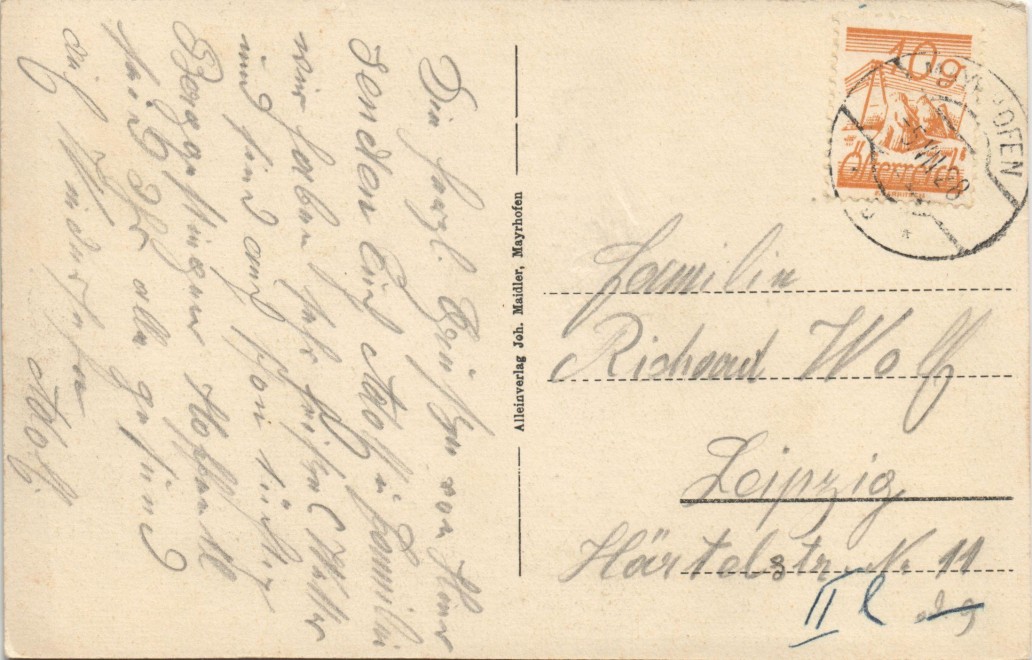 Die herzl. Grüße von hier
senden Euch Adolf u. Familie
wir haben sehr heißes Wetter
und sind auch schon tüchtig
Berggestiegen Hoffentl.
seid Ihr alle gesund
auf Wiedersehn
Adolf.
Alleinverlag Joh. Maidler, Mayrhofen
10g
Österreich
Familie
Richard Wolf
Leipzig
Härtelstr. Nr 11
II l